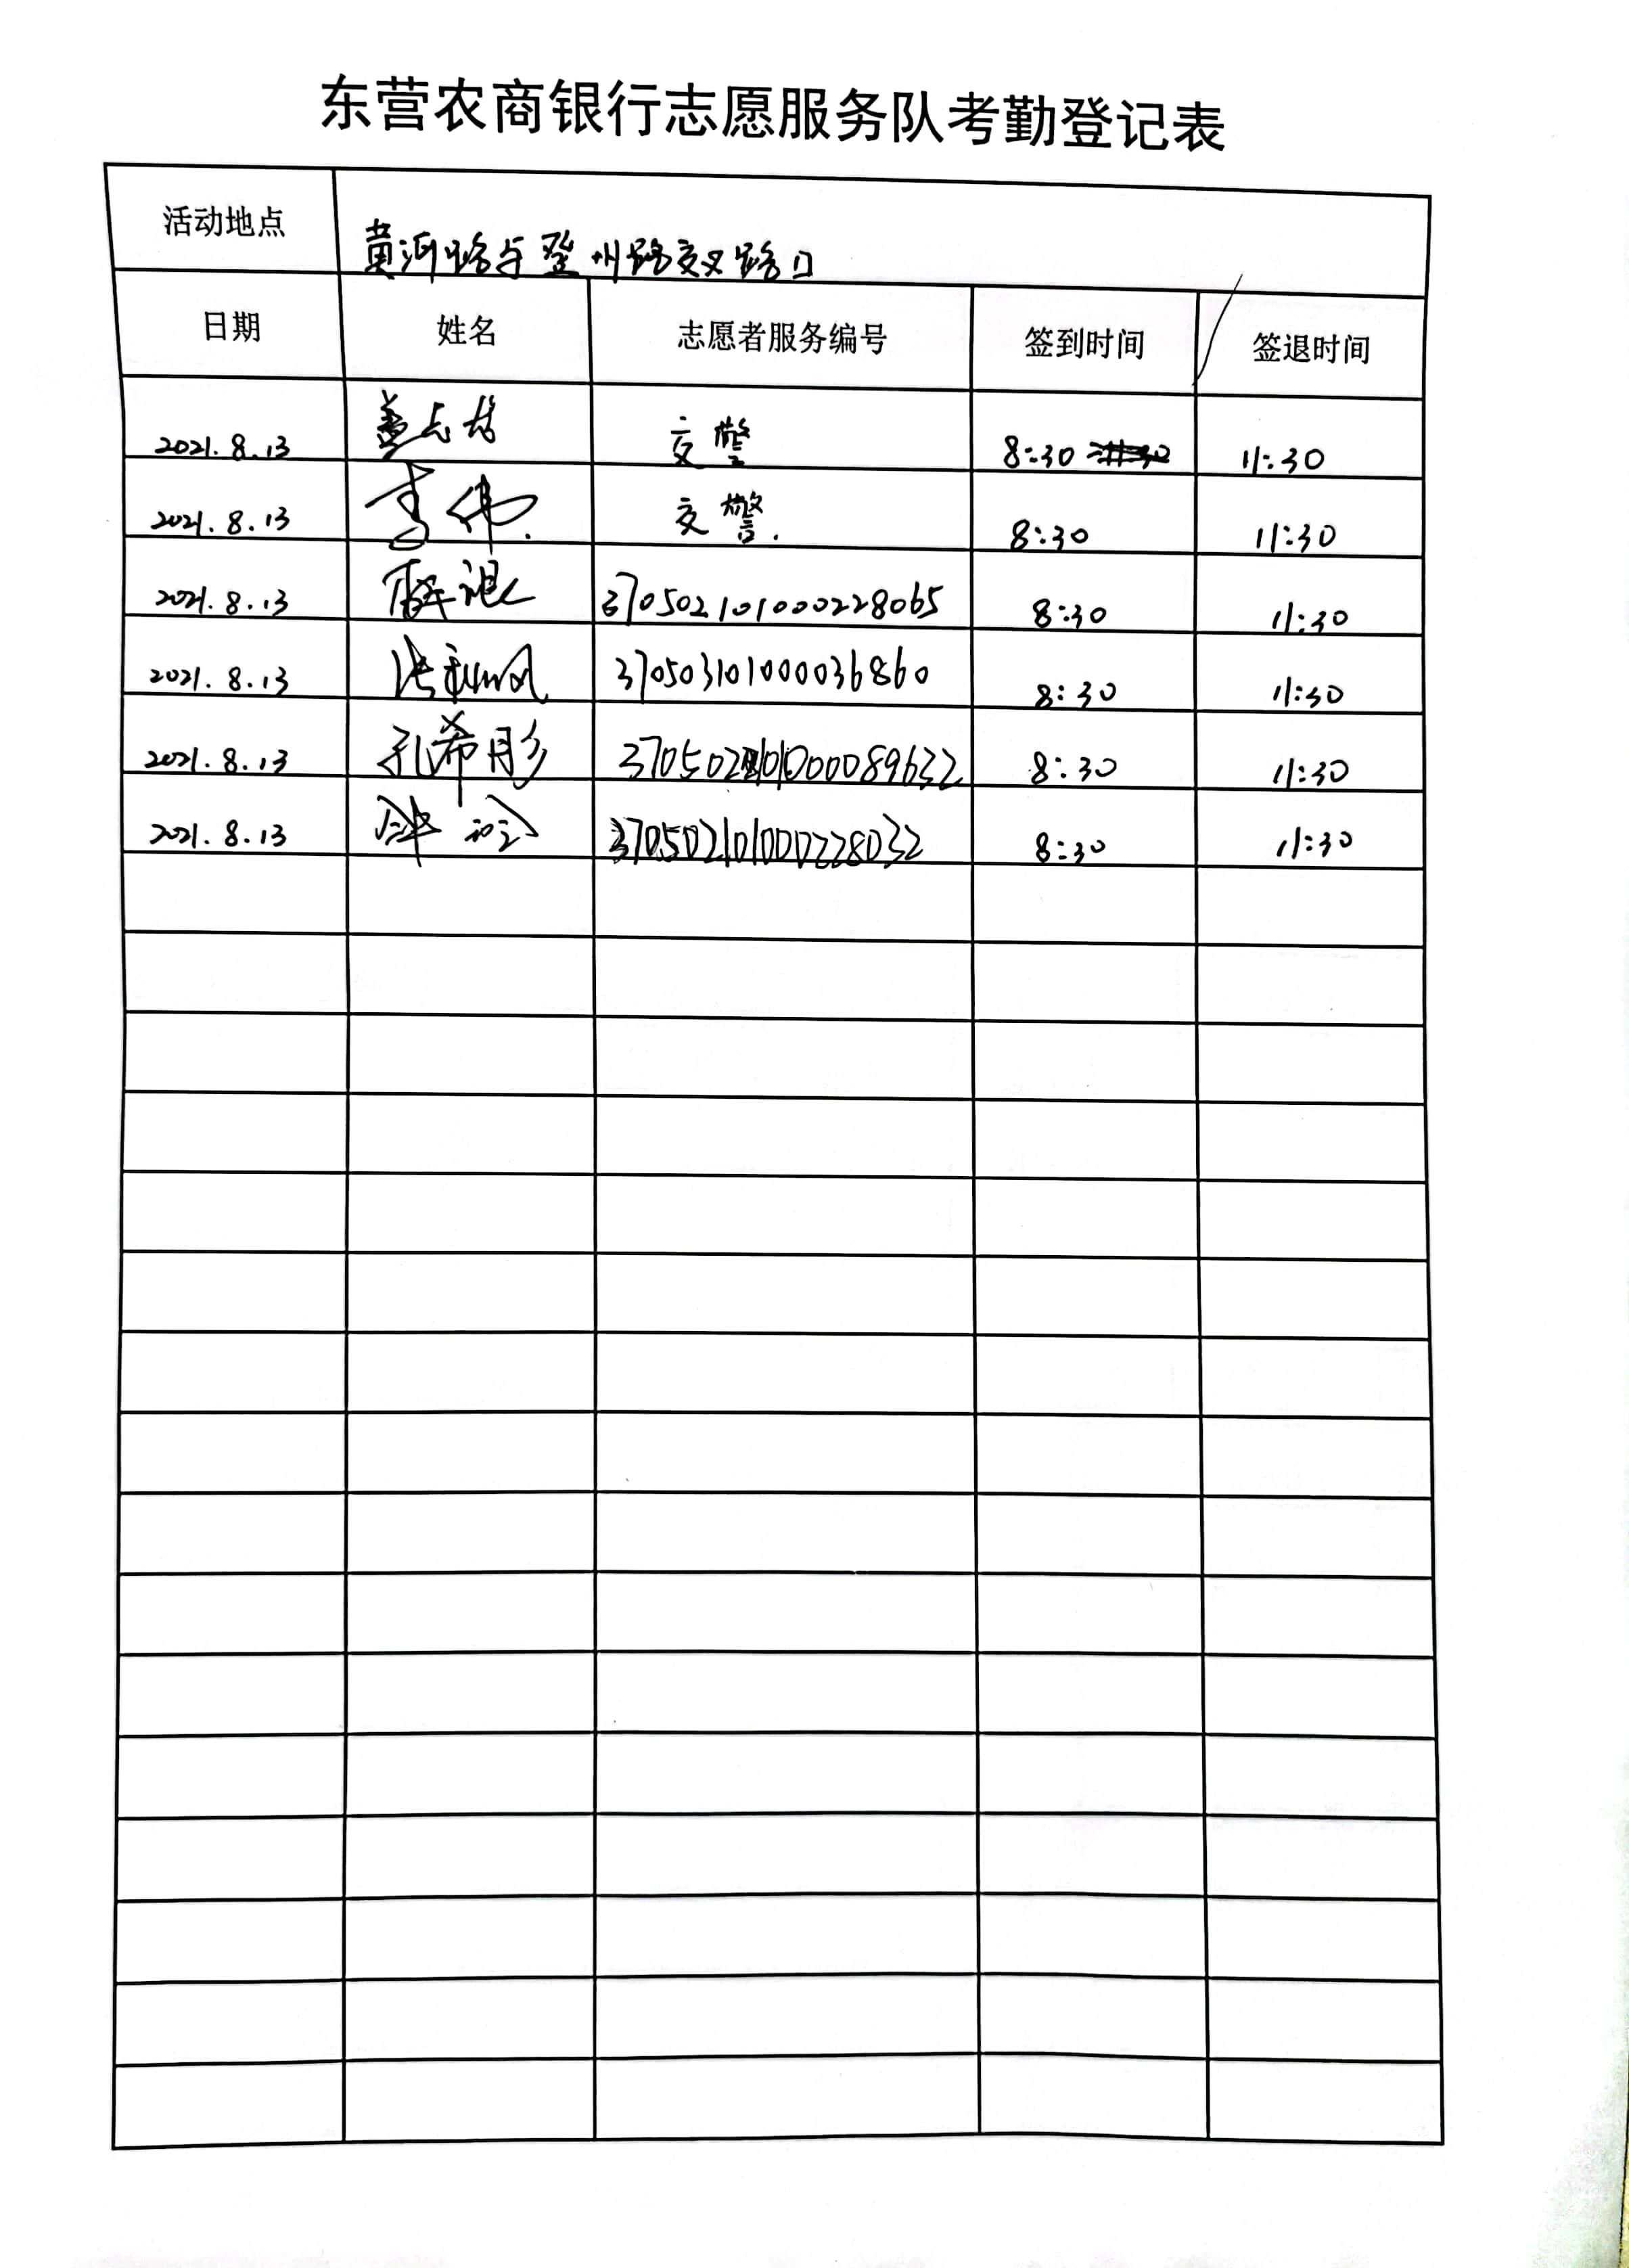 东营农商银行志愿服务队考勤登记表
活动地点 黄河路与登州路交叉路口
日期 姓名 志愿者服务编号 签到时间 签退时间
2021.8.13 交警 8:30 11:30
2021.8.13 李伟. 交警. 8:30 11:30
2021.8.13 370502101000228065 8:30 11:30
2021.8.13 370503101000036860 8:30 11:30
2021.8.13 孔希彤 8:30 11:30
2021.8.13 370502101000228032 8:30 11:30